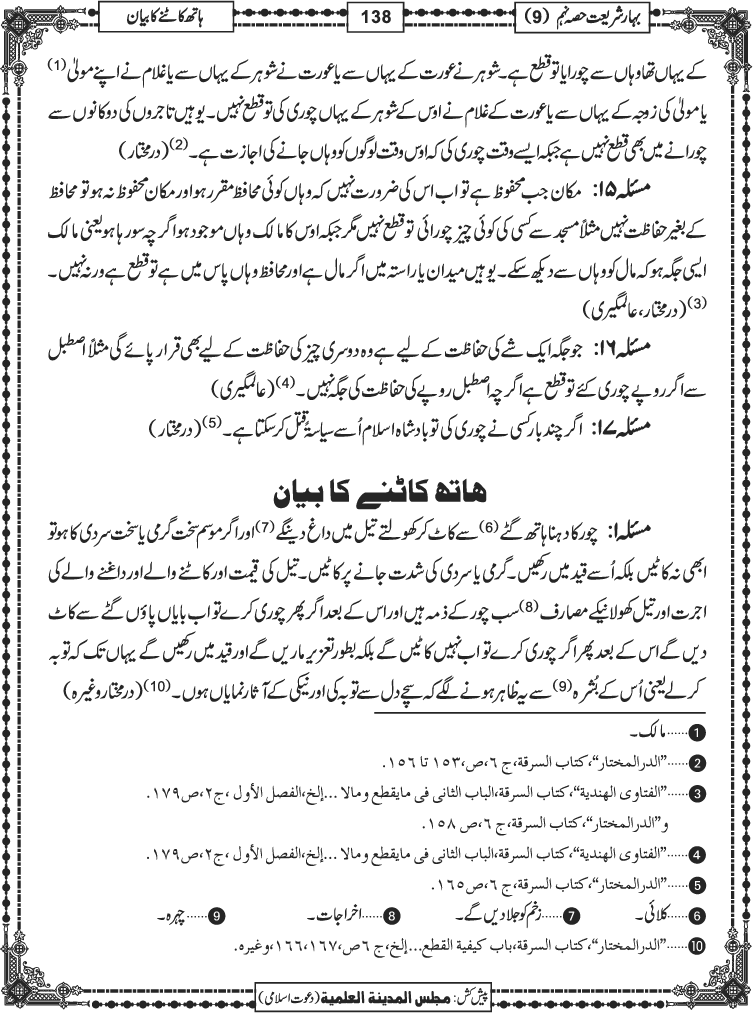 بہار شریعت حصہ نہم (9)
138
ہاتھ کاٹنے کا بیان
کے یہاں تھا وہاں سے چورایا تو قطع ہے۔ شوہر نے عورت کے یہاں سے یا عورت نے شوہر کے یہاں سے یا غلام نے اپنے مولیٰ (1)
یا مولیٰ کی زوجہ کے یہاں سے یا عورت کے غلام نے اوس کے شوہر کے یہاں چوری کی تو قطع نہیں۔ یوہیں تاجروں کی دوکانوں سے
چورانے میں بھی قطع نہیں ہے جبکہ ایسے وقت چوری کی کہ اوس وقت لوگوں کو وہاں جانے کی اجازت ہے۔ (2) (درمختار)
مسئلہ ۱۵: مکان جب محفوظ ہے تو اب اس کی ضرورت نہیں کہ وہاں کوئی محافظ مقرر ہو اور مکان محفوظ نہ ہو تو محافظ
کے بغیر حفاظت نہیں مثلاً مسجد سے کسی کی کوئی چیز چورائی تو قطع نہیں مگر جبکہ اوس کا مالک وہاں موجود ہو اگرچہ سو رہا ہو یعنی مالک
ایسی جگہ ہو کہ مال کو وہاں سے دیکھ سکے۔ یوہیں میدان یا راستہ میں اگر مال ہے اور محافظ وہاں پاس میں ہے تو قطع ہے ورنہ نہیں۔
(3) (درمختار، عالمگیری)
مسئلہ ۱۶: جو جگہ ایک شے کی حفاظت کے لیے ہے وہ دوسری چیز کی حفاظت کے لیے بھی قرار پائے گی مثلاً اصطبل
سے اگر روپے چوری گئے تو قطع ہے اگرچہ اصطبل روپے کی حفاظت کی جگہ نہیں۔ (4) (عالمگیری)
مسئلہ ۱۷: اگر چند بار کسی نے چوری کی تو بادشاہ اسلام اُسے سیاسۃً قتل کر سکتا ہے۔ (5) (درمختار)
ھاتھ کاٹنے کا بیان
مسئلہ ۱: چور کا دہنا ہاتھ گٹے (6) سے کاٹ کر کھولتے تیل میں داغ دینگے (7) اور اگر موسم سخت گرمی یا سخت سردی کا ہو تو
ابھی نہ کاٹیں بلکہ اُسے قید میں رکھیں۔ گرمی یا سردی کی شدت جانے پر کاٹیں۔ تیل کی قیمت اور کاٹنے والے اور داغنے والے کی
اجرت اور تیل کھولانیکے مصارف (8) سب چور کے ذمہ ہیں اور اس کے بعد اگر پھر چوری کرے تو اب بایاں پاؤں گٹے سے کاٹ
دیں گے اس کے بعد پھر اگر چوری کرے تو اب نہیں کاٹیں گے بلکہ بطور تعزیر ماریں گے اور قید میں رکھیں گے یہاں تک کہ توبہ
کرلے یعنی اُس کے بُشرہ (9) سے یہ ظاہر ہونے لگے کہ سچے دل سے توبہ کی اور نیکی کے آثار نمایاں ہوں۔ (10) (درمختار وغیرہ)
1 ......مالک۔
2 ......"الدرالمختار"، کتاب السرقة، ج ۶، ص۱۵۳ تا ۱۵۶.
3 ......"الفتاوی الهندية"، کتاب السرقة، الباب الثانی فی مایقطع ومالا ...إلخ، الفصل الأول، ج۲، ص۱۷۹.
و"الدرالمختار"، کتاب السرقة، ج ۶، ص ۱۵۸.
4 ......"الفتاوی الهندية"، کتاب السرقة، الباب الثانی فی مایقطع ومالا ...إلخ، الفصل الأول، ج۲، ص۱۷۹.
5 ......"الدرالمختار"، کتاب السرقة، ج ۶، ص۱۶۵.
6 ......کلائی۔ 7 ......زخم کو جلا دیں گے۔ 8 ......اخراجات۔ 9 ......چہرہ۔
10 ......"الدرالمختار"، کتاب السرقة، باب كيفية القطع...إلخ، ج ۶ ص، ۱۶۶،۱۶۷، وغیرہ.
پیش کش: مجلس المدینة العلمیة (دعوت اسلامی)